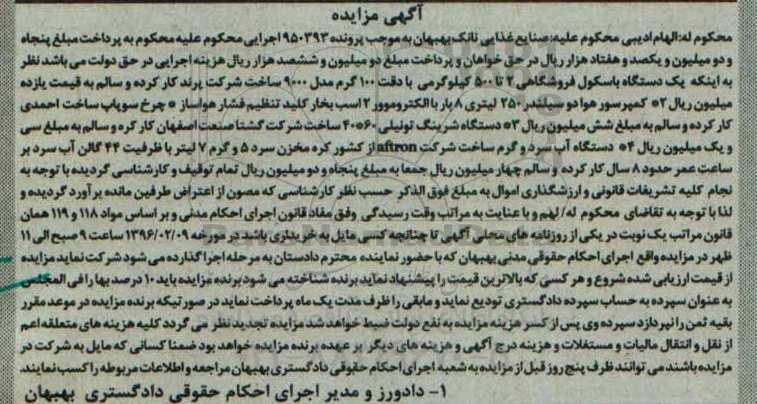 آگهی مزایده
محکوم له:الهام ادیبی محکوم علیه:صنایع غذایی نانک بهبهان به موجب پرونده ۹۵۰۳۹۳ اجرایی محکوم علیه محکوم به پرداخت مبلغ پنجاه
و دو میلیون و یکصد و هفتاد هزار ریال در حق خواهان و پرداخت مبلغ دو میلیون و ششصد هزار ریال هزینه اجرایی در حق دولت می باشد نظر
به اینکه یک دستگاه باسکول فروشگاهی ۲ تا ۵۰۰ کیلوگرمی با دقت ۱۰۰ گرم مدل ۹۰۰۰ ساخت شرکت پرند کار کرده و سالم به قیمت یازده
میلیون ریال ۲* کمپرسور هوا دو سیلندر ۲۵۰ لیتری ۸ بار با الکتروموور ۲ اسب بخار کلید تنظیم فشار هواساز * چرخ سوپاپ ساخت احمدی
کار کرده و سالم به مبلغ شش میلیون ریال ۳* دستگاه شرینگ تونیلی ۶۰*۴۰ ساخت شرکت گشتا صنعت اصفهان کار کره و سالم به مبلغ سی
و یک میلیون ریال ۴* دستگاه آب سرد و گرم ساخت شرکت aftron از کشور کره مخزن سرد ۵ و گرم ۷ لیتر با ظرفیت ۴۴ گالن آب سرد بر
ساعت عمر حدود ۸ سال کار کرده و سالم چهار میلیون ریال جمعا به مبلغ پنجاه و دو میلیون ریال تمام توقیف و کارشناسی گردیده با توجه به
نجام کلیه تشریفات قانونی و ارزشگذاری اموال به مبلغ فوق الذکر حسب نظر کارشناسی که مصون از اعتراض طرفین مانده برآورد گردیده و
لذا با توجه به تقاضای محکوم له/لهم و با عنایت به مراتب وقت رسیدگی وفق مفاد قانون اجرای احکام مدنی و بر اساس مواد ۱۱۸ و ۱۱۹ همان
قانون مراتب یک نوبت در یکی از روزنامه های محلی آگهی تا چنانچه کسی مایل به خریداری باشد در مورخه ۱۳۹۶/۰۲/۰۹ ساعت ۹ صبح الی ۱۱
ظهر در مزایده واقع اجرای احکام حقوقی مدنی بهبهان که با حضور نماینده محترم دادستان به مرحله اجرا گذارده می شود شرکت نماید مزایده
از قیمت ارزیابی شده شروع و هر کسی که بالاترین قیمت را پیشنهاد نماید برنده شناخته می شود برنده مزایده باید ۱۰ درصد بها را فی المجلس
به عنوان سپرده به حساب سپرده دادگستری تودیع نماید و مابقی را ظرف مدت یک ماه پرداخت نماید در صورتیکه برنده مزایده در موعد مقرر
بقیه ثمن را نپردازد سپرده وی پس از کسر هزینه مزایده به نفع دولت ضبط خواهد شد مزایده تجدید نظر می گردد کلیه هزینه های متعلقه اعم
از نقل و انتقال مالیات و مستغلات و هزینه درج آگهی و هزینه های دیگر بر عهده برنده مزایده خواهد بود ضمنا کسانی که مایل به شرکت در
مزایده باشند می توانند ظرف پنج روز قبل از مزایده به شعبه اجرای احکام حقوقی دادگستری بهبهان مراجعه و اطلاعات مربوطه را کسب نمایند
۱- دادورز و مدیر اجرای احکام حقوقی دادگستری بهبهان